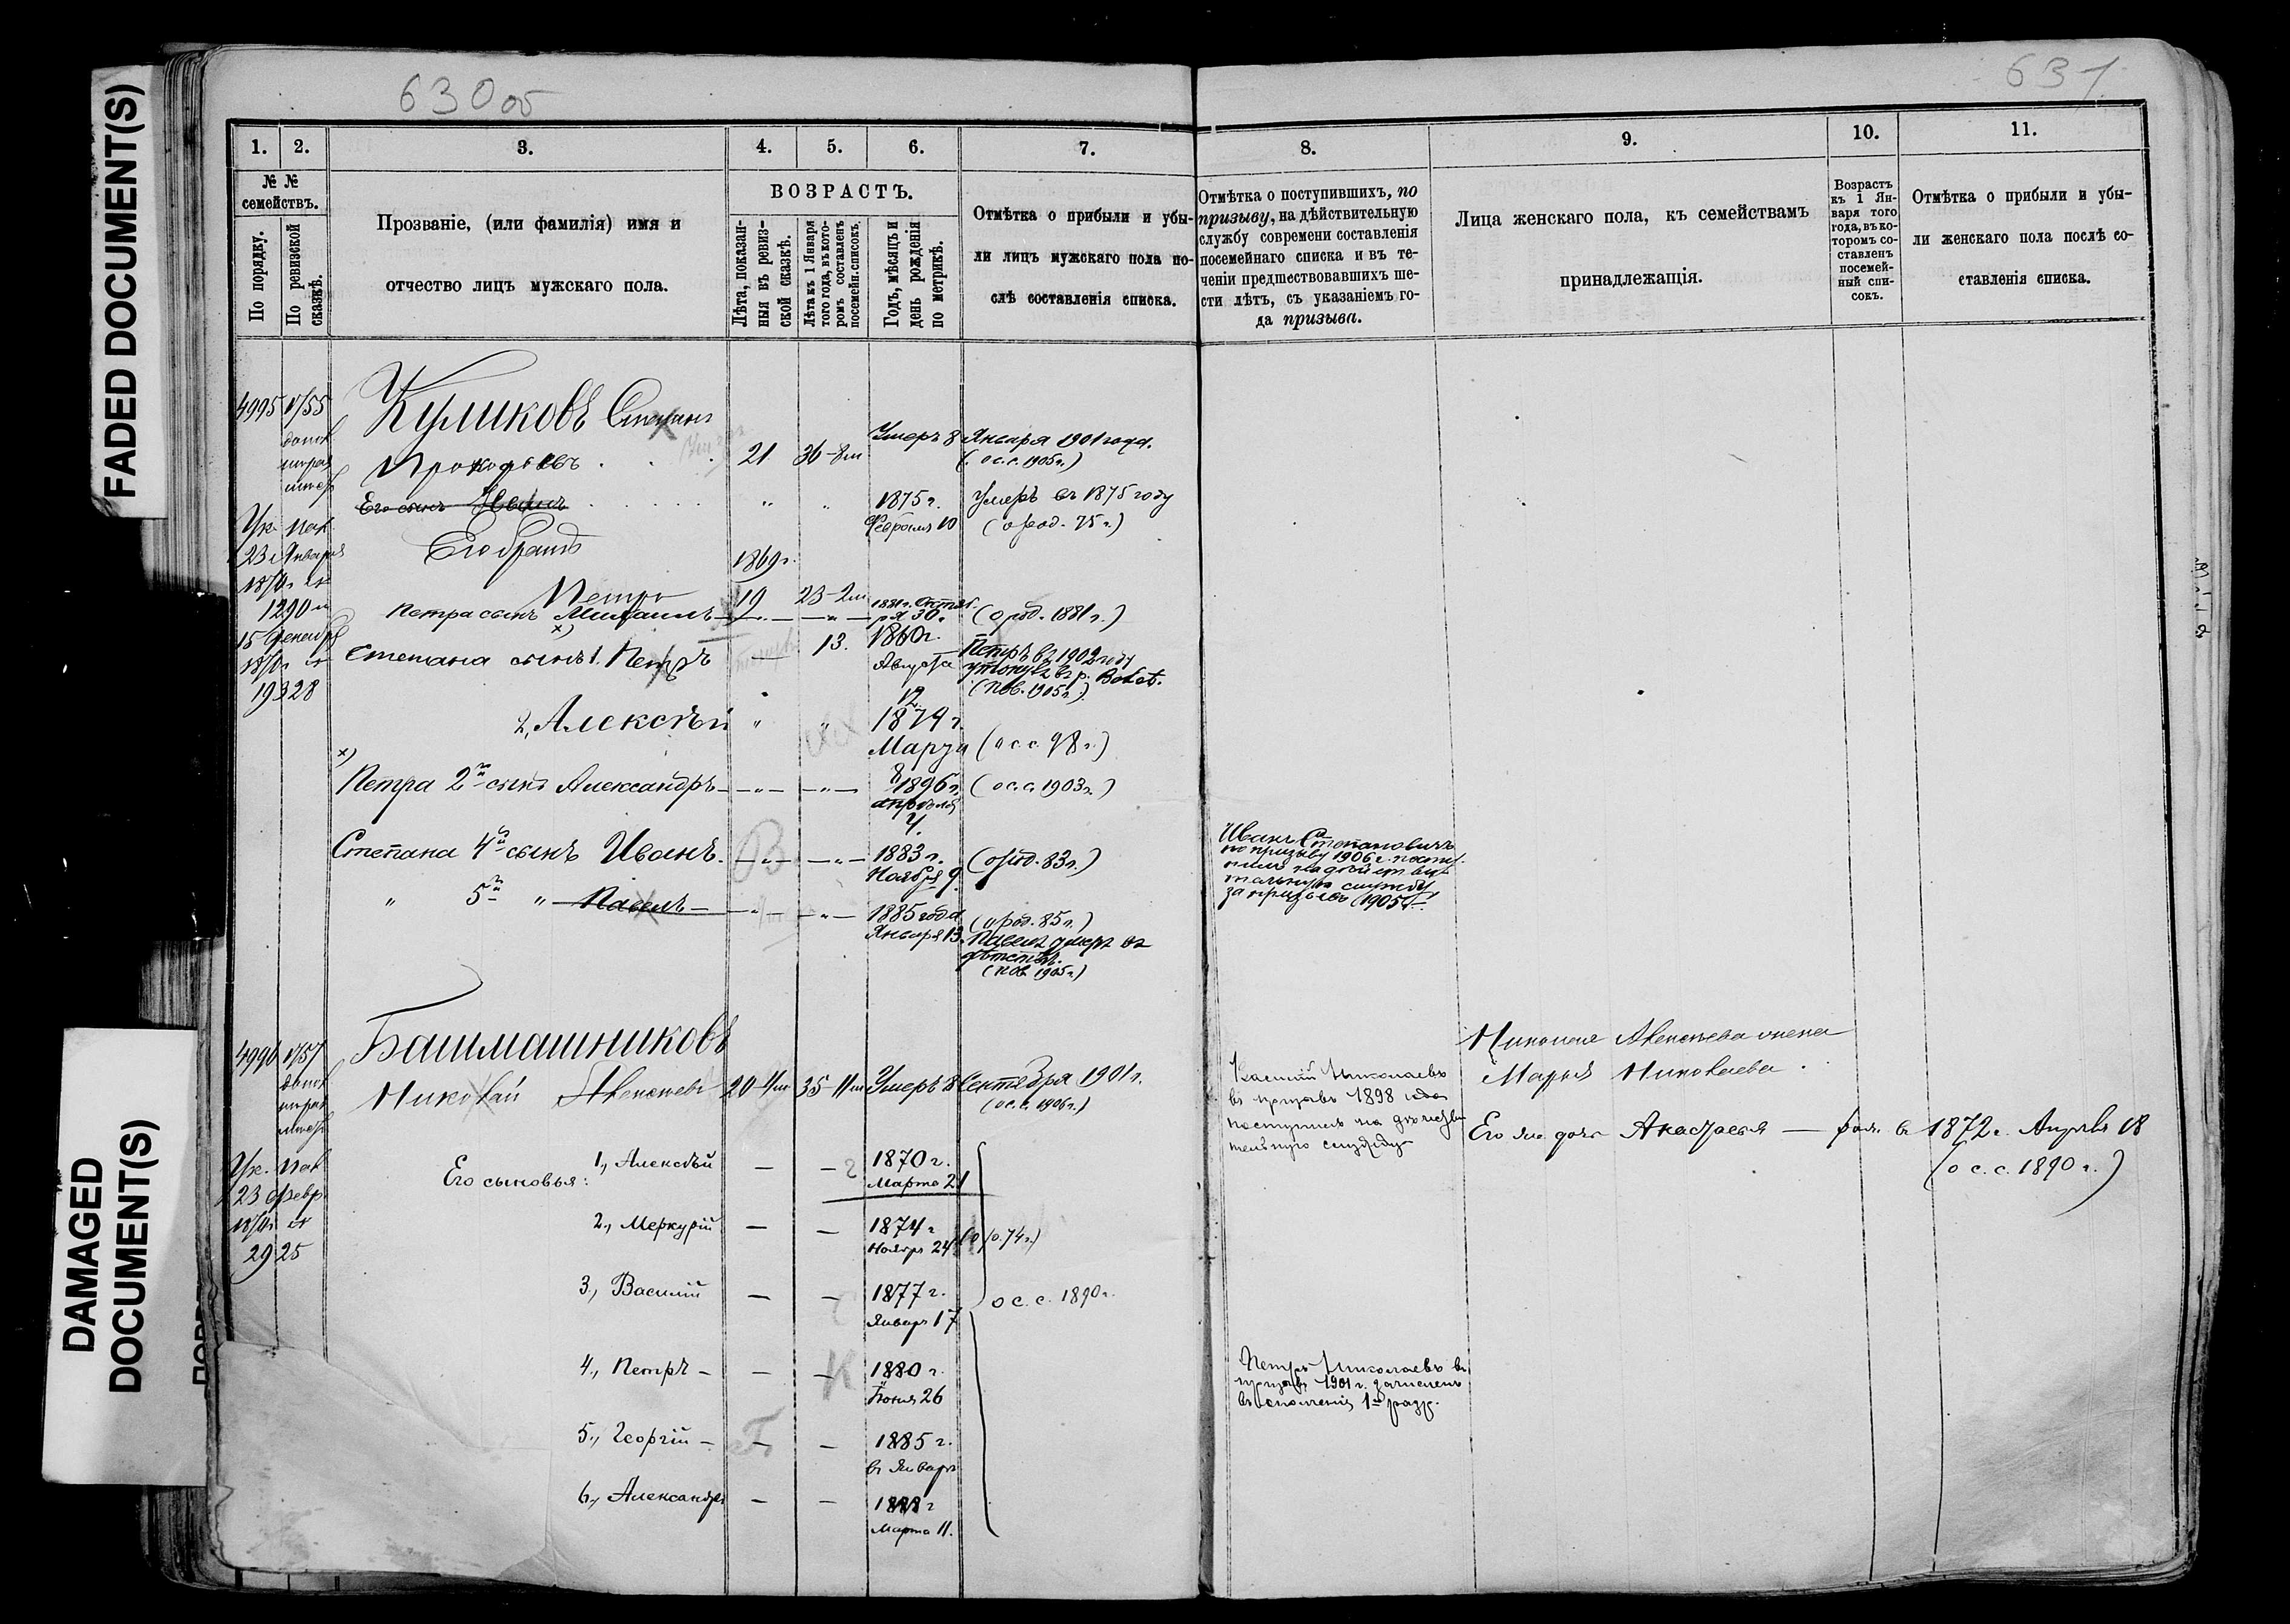 FADED DOCUMENT(S)
DAMAGED
DOCUMENT(S)
630 об
631
1. 2. 3. 4. 5. 6. 7. 8. 9. 10. 11.
№ №
семействъ.
По порядку.
По ревизской
сказкѣ.
Прозваніе, (или фамилія) имя и
отчество лицъ мужскаго пола.
ВОЗРАСТЪ.
Лѣта, показан-
ныя въ ревиз-
ской сказкѣ.
Лѣта къ 1 Января
того года, въ кото-
ромъ составленъ
посемейн. списокъ.
Годъ, мѣсяцъ и
день рожденія
по метрикѣ.
Отмѣтка о прибыли и убы-
ли лицъ мужскаго пола по-
слѣ составленія списка.
Отмѣтка о поступившихъ, по
призыву, на дѣйствительную
службу современи составленія
посемейнаго списка и въ те-
ченіи предшествовавшихъ ше-
сти лѣтъ, съ указаніемъ го-
да призыва.
Лица женскаго пола, къ семействамъ
принадлежащія.
Возрастъ
къ 1 Ян-
варя того
года, въ ко-
торомъ со-
ставленъ
посемей-
ный спи-
сокъ.
Отмѣтка о прибыли и убы-
ли женскаго пола послѣ со-
ставленія списка.
4995
Куликовъ Степанъ
Прокофьевъ 21 36
Умеръ 8 Января 1901 года.
(о с.с. 1905 г.)
Его сынъ Иванъ
1875 г.
Февраля 10
Умеръ въ 1875 году
(о род. 75 г.)
Ук. Пал.
23 Января
1290
15 Декабря
19328
Его братъ
1869 г.
Петръ 19 23
Петра сынъ Михаилъ
1881 г. Октяб.
ря 30.
(о род. 1881 г.)
х)
Степана сынъ 1. Петръ 13.
1860 г.
Августа
12
Петръ въ 1902 году
утонулъ въ р.
(пов. 1905 г.)
2, Алексѣй
1879 г.
Марта
8
(о с.с. 98 г.)
х)
Петра 2й сынъ Александръ
1896 г.
апрѣля
4.
(о с.с. 1903 г.)
Степана 4й сынъ Иванъ
1883 г.
Ноября 9.
(о род. 83 г.)
Иванъ Степановичъ
по призыву 1906 г. посту-
пилъ на дѣйстви-
тельную службу
за призывъ 1905 г.
" 5й " Павелъ
1885 года
Января 13.
(о род. 85 г.)
Павелъ умеръ въ
дѣтствѣ.
(пов. 1905 г.)
4996
Башмашниковъ
Николай Алексѣевъ 20 35
Умеръ 8 Сентября 1901 г.
(о с.с. 1906 г.)
Ук. Пал.
23 Февр.
2925
Василій Николаевъ
въ призывъ 1898 года
поступилъ на дѣйстви-
тельную службу
Николая Алексѣева жена
Марья Николаева.
Его же дочь Анастасья — род. въ 1872 г. Апрѣля 18
(о с.с. 1890 г.)
Его сыновья:
1., Алексѣй
1870 г.
Марта 21
2., Меркурій
1874 г.
Ноябр. 24
(о р. 74 г.)
3., Василій
1877 г.
Январ. 17
о с.с. 1890 г.
4., Петръ
1880 г.
Іюня 26
Петръ Николаевъ въ
призывъ 1901 г. зачисленъ
въ ополченіе 1й разр.
5., Георгій
1885 г.
въ Январѣ
6., Александръ
1888 г.
Марта 11.